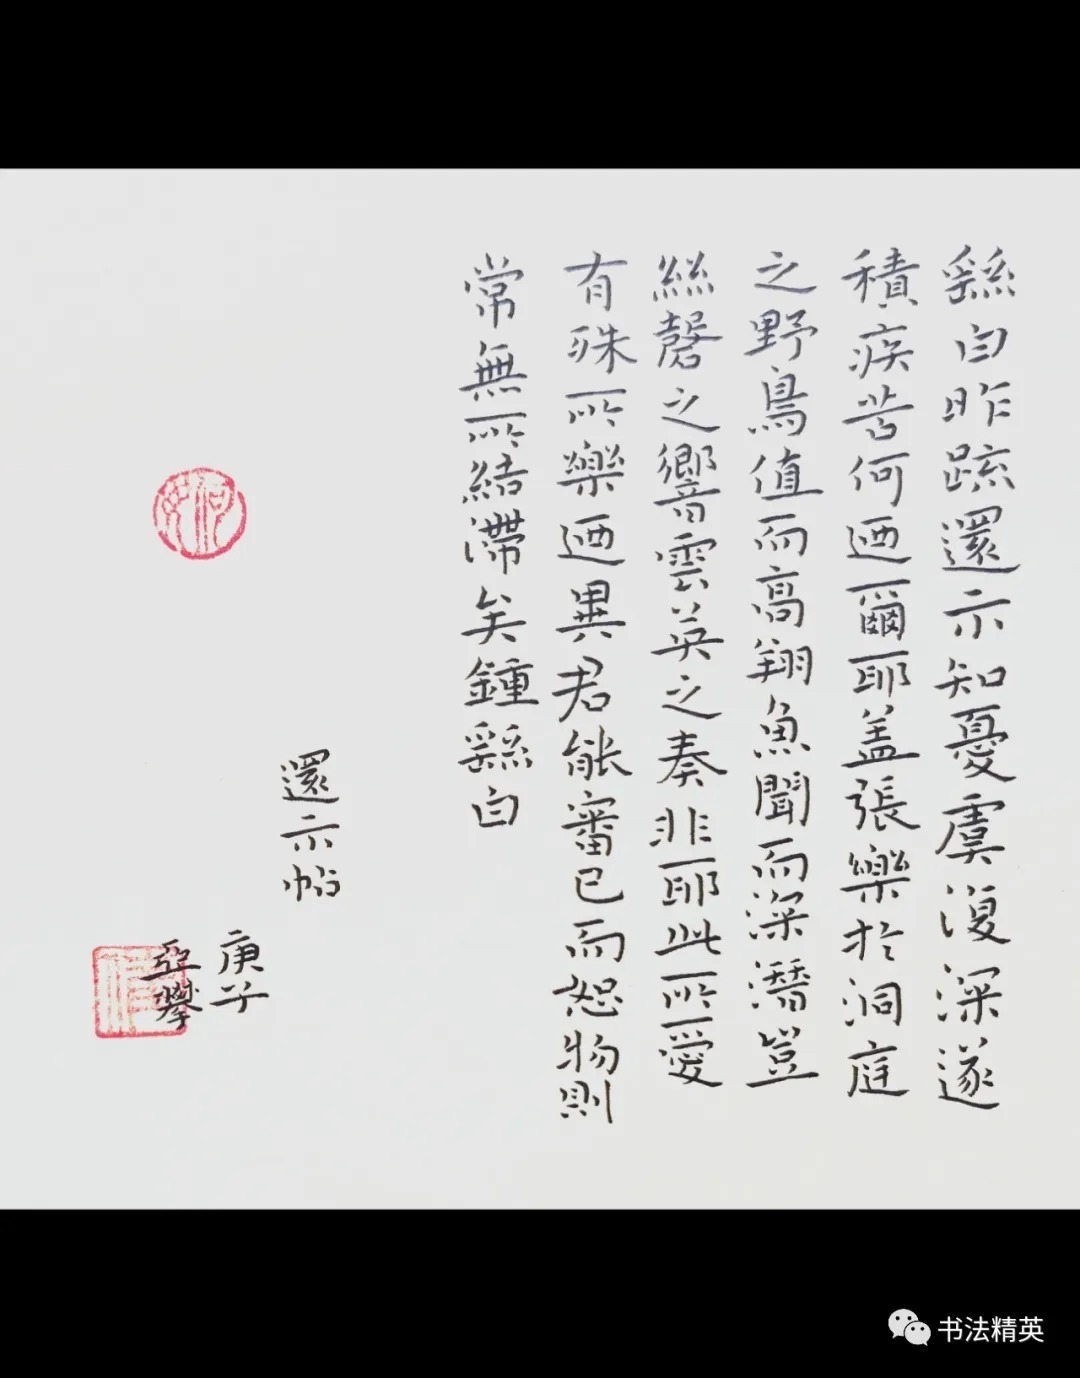 繇白昨疏還示知憂虞復深遂
積疾苦何迺爾耶盖張樂於洞庭
之野鳥值而高翔魚聞而深潛豈
絲磬之響雲英之奏非耶此所愛
有殊所樂迺異君能審己而恕物則
常無所結滯矣鍾繇白
還示帖
庚子
亞攀
书法精英